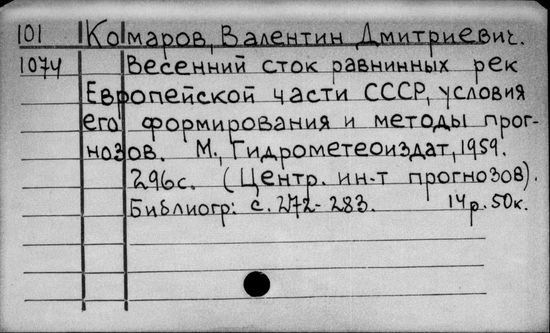 101 Комаров, Валентин Дмитриевич.
1074 Весенний сток равнинных рек
Европейской части СССР, условия
его формирования и методы прог-
нозов. М., Гидрометеоиздат, 1959.
296с. (Центр. ин-т прогнозов).
Библиогр: с. 272-283. 14р. 50к.